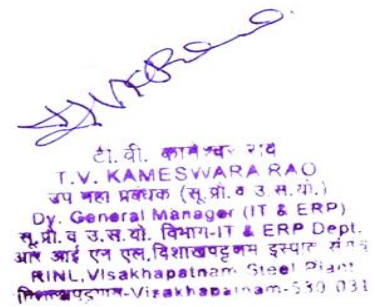 टी. वी. कामेश्वर राव
T.V. KAMESWARA RAO
उप महा प्रबंधक (सू.प्रौ. व उ.स.यो.)
Dy. General Manager (IT & ERP)
सू.प्रौ. व उ.स.यो. विभाग-IT & ERP Dept.
आर आई एन एल, विशाखपट्टणम इस्पात
RINL, Visakhapatnam Steel Plant
-Visakhapatnam-530 031